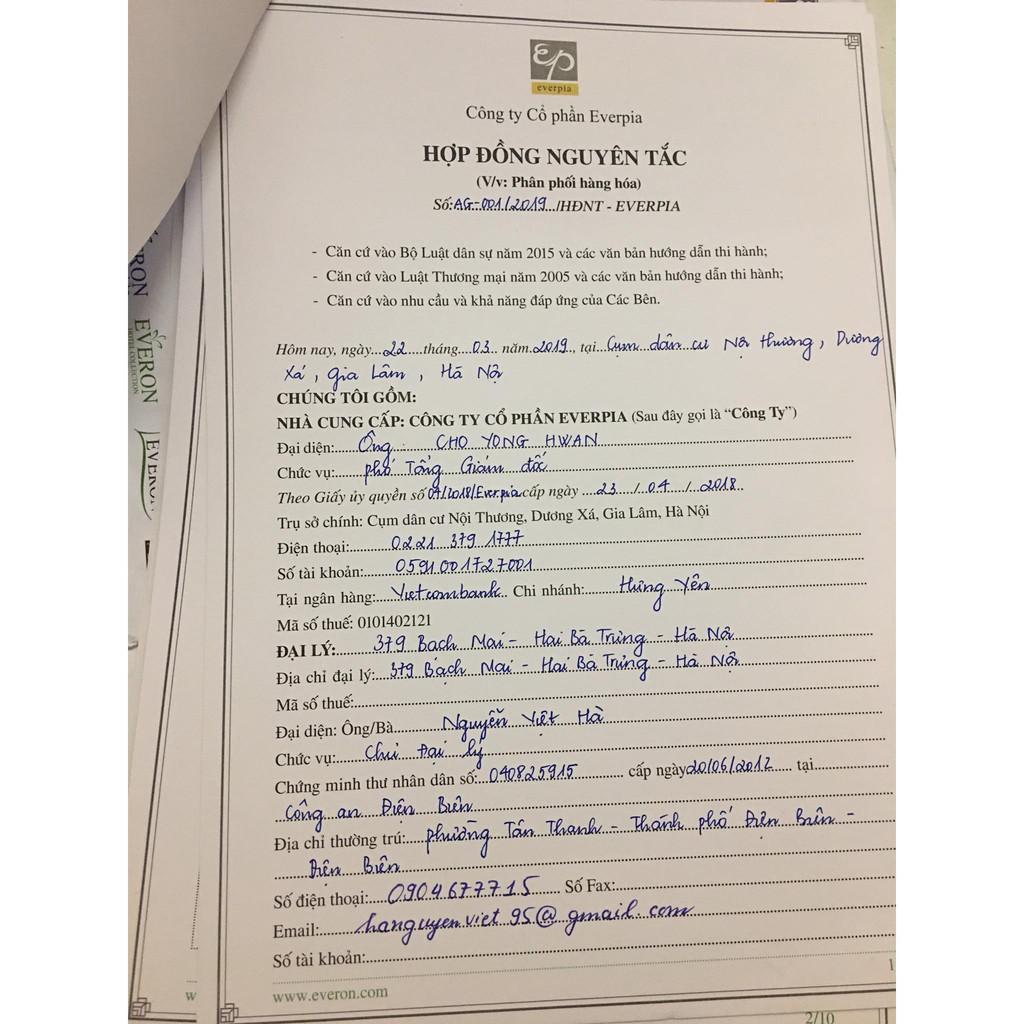 everpia
Công ty Cổ phần Everpia
HỢP ĐỒNG NGUYÊN TẮC
(V/v: Phân phối hàng hóa)
Số:AG-001/2019../HĐNT - EVERPIA
- Căn cứ vào Bộ Luật dân sự năm 2015 và các văn bản hướng dẫn thi hành;
- Căn cứ vào Luật Thương mại năm 2005 và các văn bản hướng dẫn thi hành;
- Căn cứ vào nhu cầu và khả năng đáp ứng của Các Bên.
Hôm nay, ngày...22....tháng...03.. năm.2019., tại...Cụm dân cư Nội Thương, Dương
Xá, Gia Lâm, Hà Nội
CHÚNG TÔI GỒM:
NHÀ CUNG CẤP: CÔNG TY CỔ PHẦN EVERPIA (Sau đây gọi là “Công Ty”)
Đại diện:....Ông : CHO YONG HWAN
Chức vụ:....phó Tổng Giám đốc
Theo Giấy ủy quyền số 04/2018/Everpia cấp ngày ...23..../..04.../...2018..
Trụ sở chính: Cụm dân cư Nội Thương, Dương Xá, Gia Lâm, Hà Nội
Điện thoại:.......0221 379 1777
Số tài khoản:.......0591001727001
Tại ngân hàng:...Vietcombank.. Chi nhánh:.......Hưng Yên
Mã số thuế: 0101402121
ĐẠI LÝ:.......379 Bạch Mai - Hai Bà Trưng - Hà Nội
Địa chỉ đại lý:...379 Bạch Mai - Hai Bà Trưng - Hà Nội
Mã số thuế:
Đại diện: Ông/Bà.......Nguyễn Việt Hà
Chức vụ:.....Chủ Đại lý
Chứng minh thư nhân dân số:..040825915............ cấp ngày20/06/2012..... tại
Công an Điện Biên
Địa chỉ thường trú:...phường Tân Thanh - Thành phố Điện Biên -
Điện Biên
Số điện thoại:....0904677715...... Số Fax:
Email:.......hanguyenviet95@gmail.com
Số tài khoản:
1
www.everon.com
w
2/10
RON
EVERON
HOTEL COLLECTION
EVERON